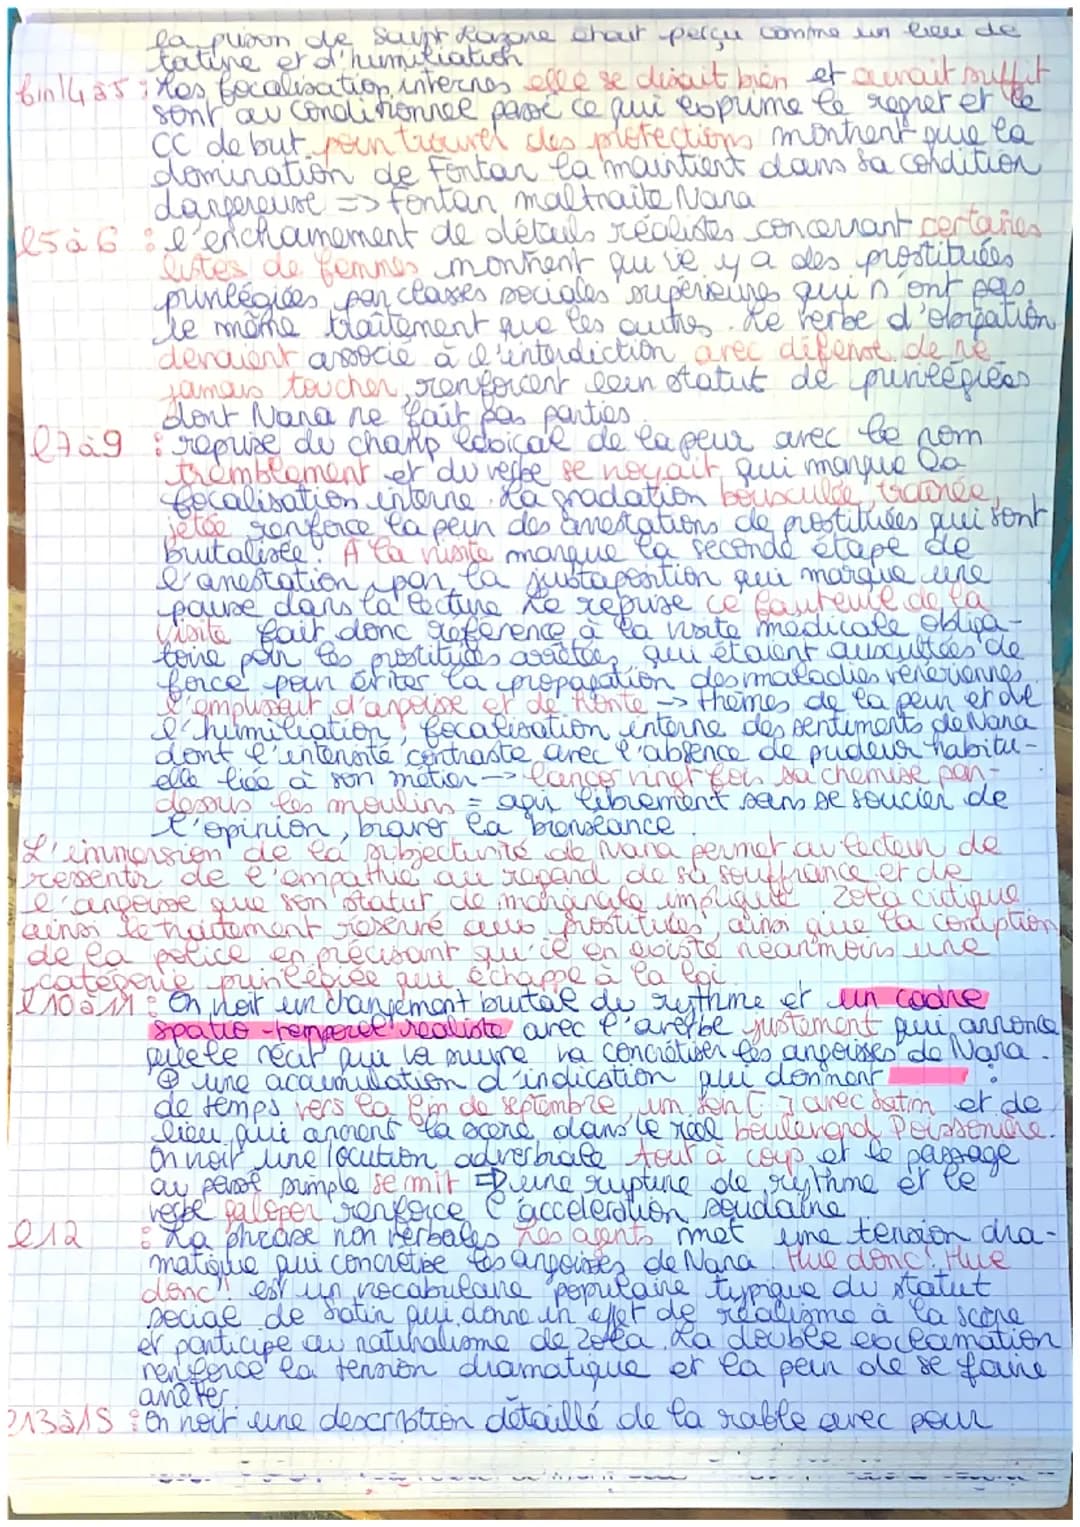 la prison de Saint Lazare était perçu comme un lieu de
et d'humiliation
fin l4 à 5 : Les focalisation internes elle se disait bien et aurait suffit
sont au conditionnel passé ce qui exprime le regret et le
CC de but pour trouver des protections montrent que la
domination de Fontan la maintient dans sa condition
dangereuse => Fontan maltraite Nana
l5 à 6 : l'enchainement de détails réalistes concernant certaines
listes de femmes montrent qu'il y a des prostituées
privilégiées par classes sociales supérieures qui n'ont pas
le même traitement que les autres. Le verbe d'obligation
devaient associé à l'interdiction avec défense de ne
jamais toucher, renforcent leur statut de privilégiées
dont Nana ne fait pas parties.
l7 à 9 : reprise du champ lexical de la peur avec le nom
tremblement et du verbe se noyait qui marque la
focalisation interne. La gradation bousculée, trainée,
jetée renforce la peur des arrestations de prostituées qui sont
brutalisée. A la visite marque la seconde étape de
l'arrestation par la juxtaposition qui marque une
pause dans la lecture. Le reprise ce fauteuil de la
visite fait donc référence à la visite médicale obliga-
toire pour les prostituées arrêtées qui étaient auscultées de
force pour éviter la propagation des maladies vénériennes.
l'emplissait d'angoisse et de honte -> thèmes de la peur et de
l'humiliation, focalisation interne des sentiments de Nana
dont l'intensité contraste avec l'absence de pudeur habitu-
elle liée à son métier -> lancer vingt fois sa chemise par-
dessus les moulins = agir librement sans se soucier de
l'opinion, braver la bienséance.
L'immersion de la subjectivité de Nana permet au lecteur de
ressentir de l'empathie au regard de sa souffrance et de
l'angoisse que son statut de marginale implique Zola critique
ainsi le traitement réservé aux prostituées, ainsi que la corruption
de la police en précisant qu'il en existe néanmoins une
catégorie privilégiée qui échappe à la loi.
l10 à 11 : On voit un changement brutal du rythme et un cadre
spatio-temporel réaliste avec l'averbe justement qui annonce
que le récit qui va suivre va concrétiser les angoisses de Nana.
⊕ une accumulation d'indication qui donnent :
de temps vers la fin de septembre, un soir [ ] avec Satin et de
lieu qui ancrent la scène dans le réel boulevard Poissonière.
On voit une locution adverbiale tout à coup et le passage
au passé simple se mit => une rupture de rythme et le
verbe galoper renforce l'accélération soudaine
l12 : La phrase non verbales Les agents met une tension dra-
matique qui concrétise les angoisses de Nana. Hue donc! Hue
donc! est un vocabulaire populaire typique du statut
social de Satin qui donne un effet de réalisme à la scène
et participe au naturalisme de Zola. La double exclamation
renforce la tension dramatique et la peur de se faire
arrêter.
l13 à 15 : On voit une description détaillé de la rafle avec pour